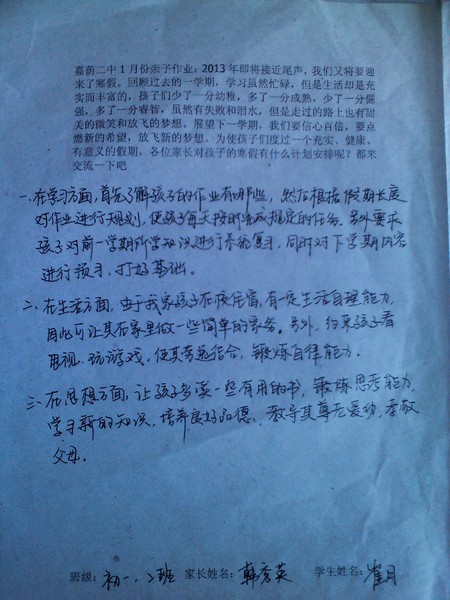 嘉荫二中1月份亲子作业：2013年即将接近尾声，我们又将要迎
来了寒假。回顾过去的一学期，学习虽然忙碌，但是生活却是充
实而丰富的，孩子们少了一分幼稚，多了一分成熟，少了一分倔
强，多了一分睿智，虽然有失败和泪水，但是走过的路上也有甜
美的微笑和放飞的梦想。展望下一学期，我们要信心百倍，要点
燃新的希望，放飞新的梦想。为使孩子们度过一个充实、健康、
有意义的假期，各位家长对孩子的寒假有什么计划安排呢？都来
交流一下吧
一、在学习方面，首先了解孩子的作业有哪些，然后根据假期长度
对作业进行规划，使孩子每天按时完成规定的任务。另外要求
孩子对前一学期所学知识进行系统复习，同时对下学期内容
进行预习，打好基础。
二、在生活方面，由于我家孩子在校住宿，有一定生活自理能力，
因此可让其在家里做一些简单的家务。另外，约束孩子看
电视、玩游戏，使其劳逸结合，锻炼自律能力。
三、在思想方面，让孩子多读一些有用的书，锻炼思考能力，
学习新的知识，培养良好品德，教导其尊老爱幼，孝敬
父母。
班级：初一、2班 家长姓名：韩秀英 学生姓名：崔月